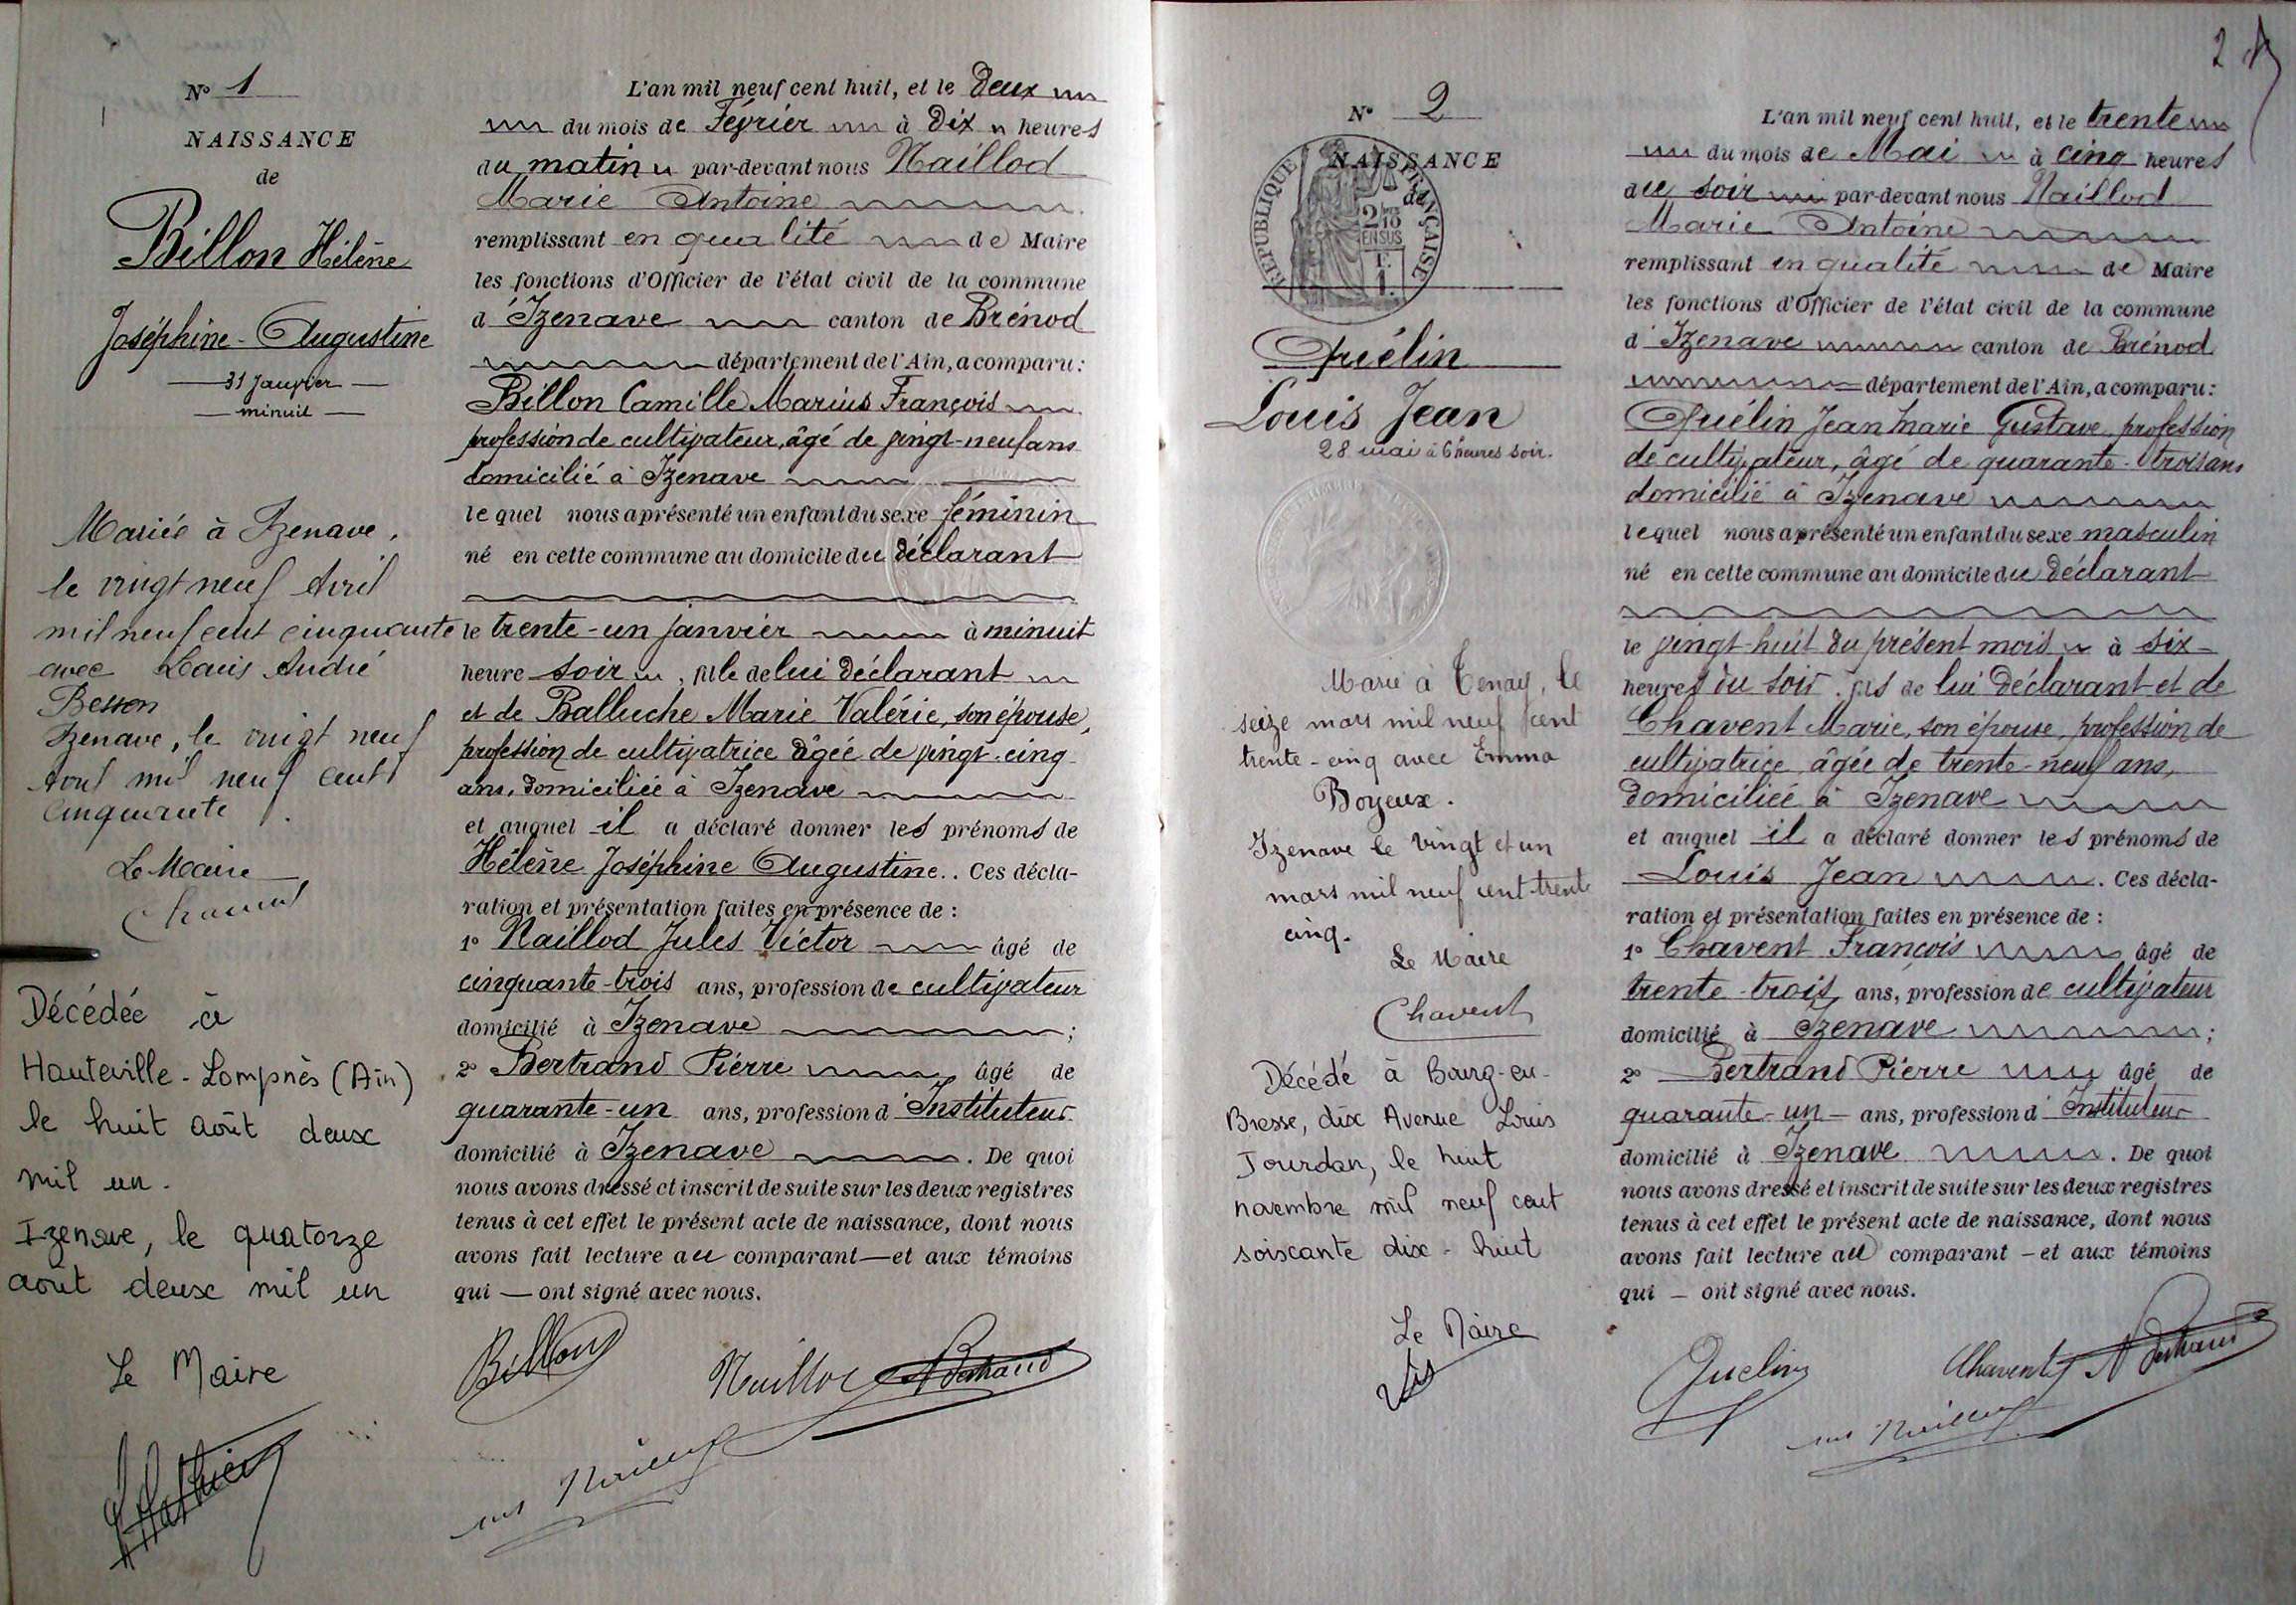 N° 1
NAISSANCE
de
Billon Hélène
Joséphine-Augustine
31 Janvier
minuit
Mariée à Izenave,
le vingt neuf Avril
mil neuf cent cinquante
avec Louis André
Besson
Izenave, le vingt neuf
Aout mil neuf cent
cinquante.
Le Maire
Chavent
Décédée à
Hauteville-Lompnès (Ain)
le huit août deux
mil un.
Izenave, le quatorze
août deux mil un
Le Maire
L'an mil neuf cent huit, et le deux
du mois de Février à dix heures
du matin par-devant nous Naillod
Marie Antoine
remplissant en qualité de Maire
les fonctions d'Officier de l'état civil de la commune
d'Izenave canton de Brénod
département de l'Ain, a comparu:
Billon Camille Marius François
profession de cultivateur, âgé de vingt-neuf ans
domicilié à Izenave
lequel nous a présenté un enfant du sexe féminin
né en cette commune au domicile du déclarant
le trente-un janvier à minuit
heure soir, file de lui déclarant
et de Balluche Marie Valérie, son épouse,
profession de cultivatrice âgée de vingt-cinq
ans, domiciliée à Izenave
et auquel il a déclaré donner les prénoms de
Hélène Joséphine Augustine.. Ces décla-
ration et présentation faites en présence de :
1° Naillod Jules Victor âgé de
cinquante-trois ans, profession de cultivateur
domicilié à Izenave ;
2° Bertrand Pierre âgé de
quarante-un ans, profession d'Instituteur
domicilié à Izenave . De quoi
nous avons dressé et inscrit de suite sur les deux registres
tenus à cet effet le présent acte de naissance, dont nous
avons fait lecture au comparant — et aux témoins
qui — ont signé avec nous.
Billon
Naillod Bertrand
2
N° 2
NAISSANCE
de
RÉPUBLIQUE FRANÇAISE
2/10
EN SUS
Quélin
Louis Jean
28 mai à 6 heures soir.
Marié à Tenay, le
seize mars mil neuf cent
trente-cinq avec Emma
Boyeux.
Izenave le vingt et un
mars mil neuf cent trente
cinq.
Le Maire
Chavent
Décédé à Bourg-en-
Bresse, dix Avenue Louis
Jourdan, le huit
novembre mil neuf cent
soixante dix-huit
Le Maire
L'an mil neuf cent huit, et le trente
du mois de Mai à cinq heures
du soir par-devant nous Naillod
Marie Antoine
remplissant en qualité de Maire
les fonctions d'Officier de l'état civil de la commune
d'Izenave canton de Brénod
département de l'Ain, a comparu:
Quélin Jean Marie Gustave profession
de cultivateur, âgé de quarante-trois ans
domicilié à Izenave
lequel nous a présenté un enfant du sexe masculin
né en cette commune au domicile du déclarant
le vingt-huit du présent mois à six
heures du soir. fils de lui déclarant et de
Chavent Marie, son épouse, profession de
cultivatrice âgée de trente-neuf ans,
domiciliée à Izenave
et auquel il a déclaré donner les prénoms de
Louis Jean . Ces décla-
ration et présentation faites en présence de :
1° Chavent François âgé de
trente-trois ans, profession de cultivateur
domicilié à Izenave ;
2° Bertrand Pierre âgé de
quarante-un — ans, profession d'Instituteur
domicilié à Izenave . De quoi
nous avons dressé et inscrit de suite sur les deux registres
tenus à cet effet le présent acte de naissance, dont nous
avons fait lecture au comparant — et aux témoins
qui — ont signé avec nous.
Quelin Chavent Bertrand